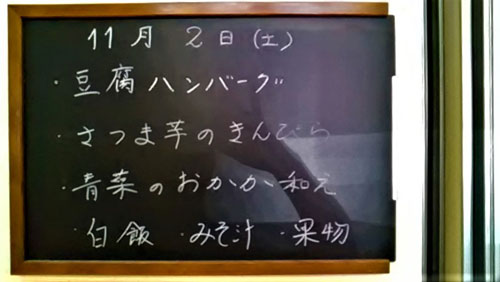 11月 2日(土)
・豆腐ハンバーグ
・さつま芋のきんぴら
・青菜のおかか和え
・白飯 ・みそ汁 ・果物